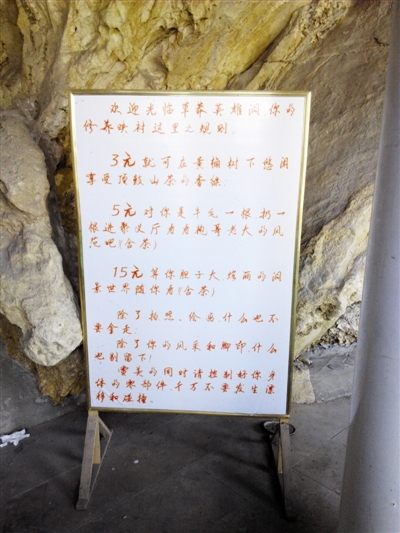 欢迎光临草莽英雄洞,你的
修养映衬这里之规则。
3元 就可在黄桷树下悠闲
享受顶级山茶的香味。
5元 对你是牛毛一根扔一
根进聚义厅看看抱哥老大的风
范吧(含茶)
15元 算你胆子大,炫丽的洞
景世界随你看(含茶)
除了拍照、绘画什么也不
要拿走;
除了你的风采和脚印,什么
也别留下!
赏美的同时请控制好你身
体的零部件,千万不要发生漂
移和碰撞。